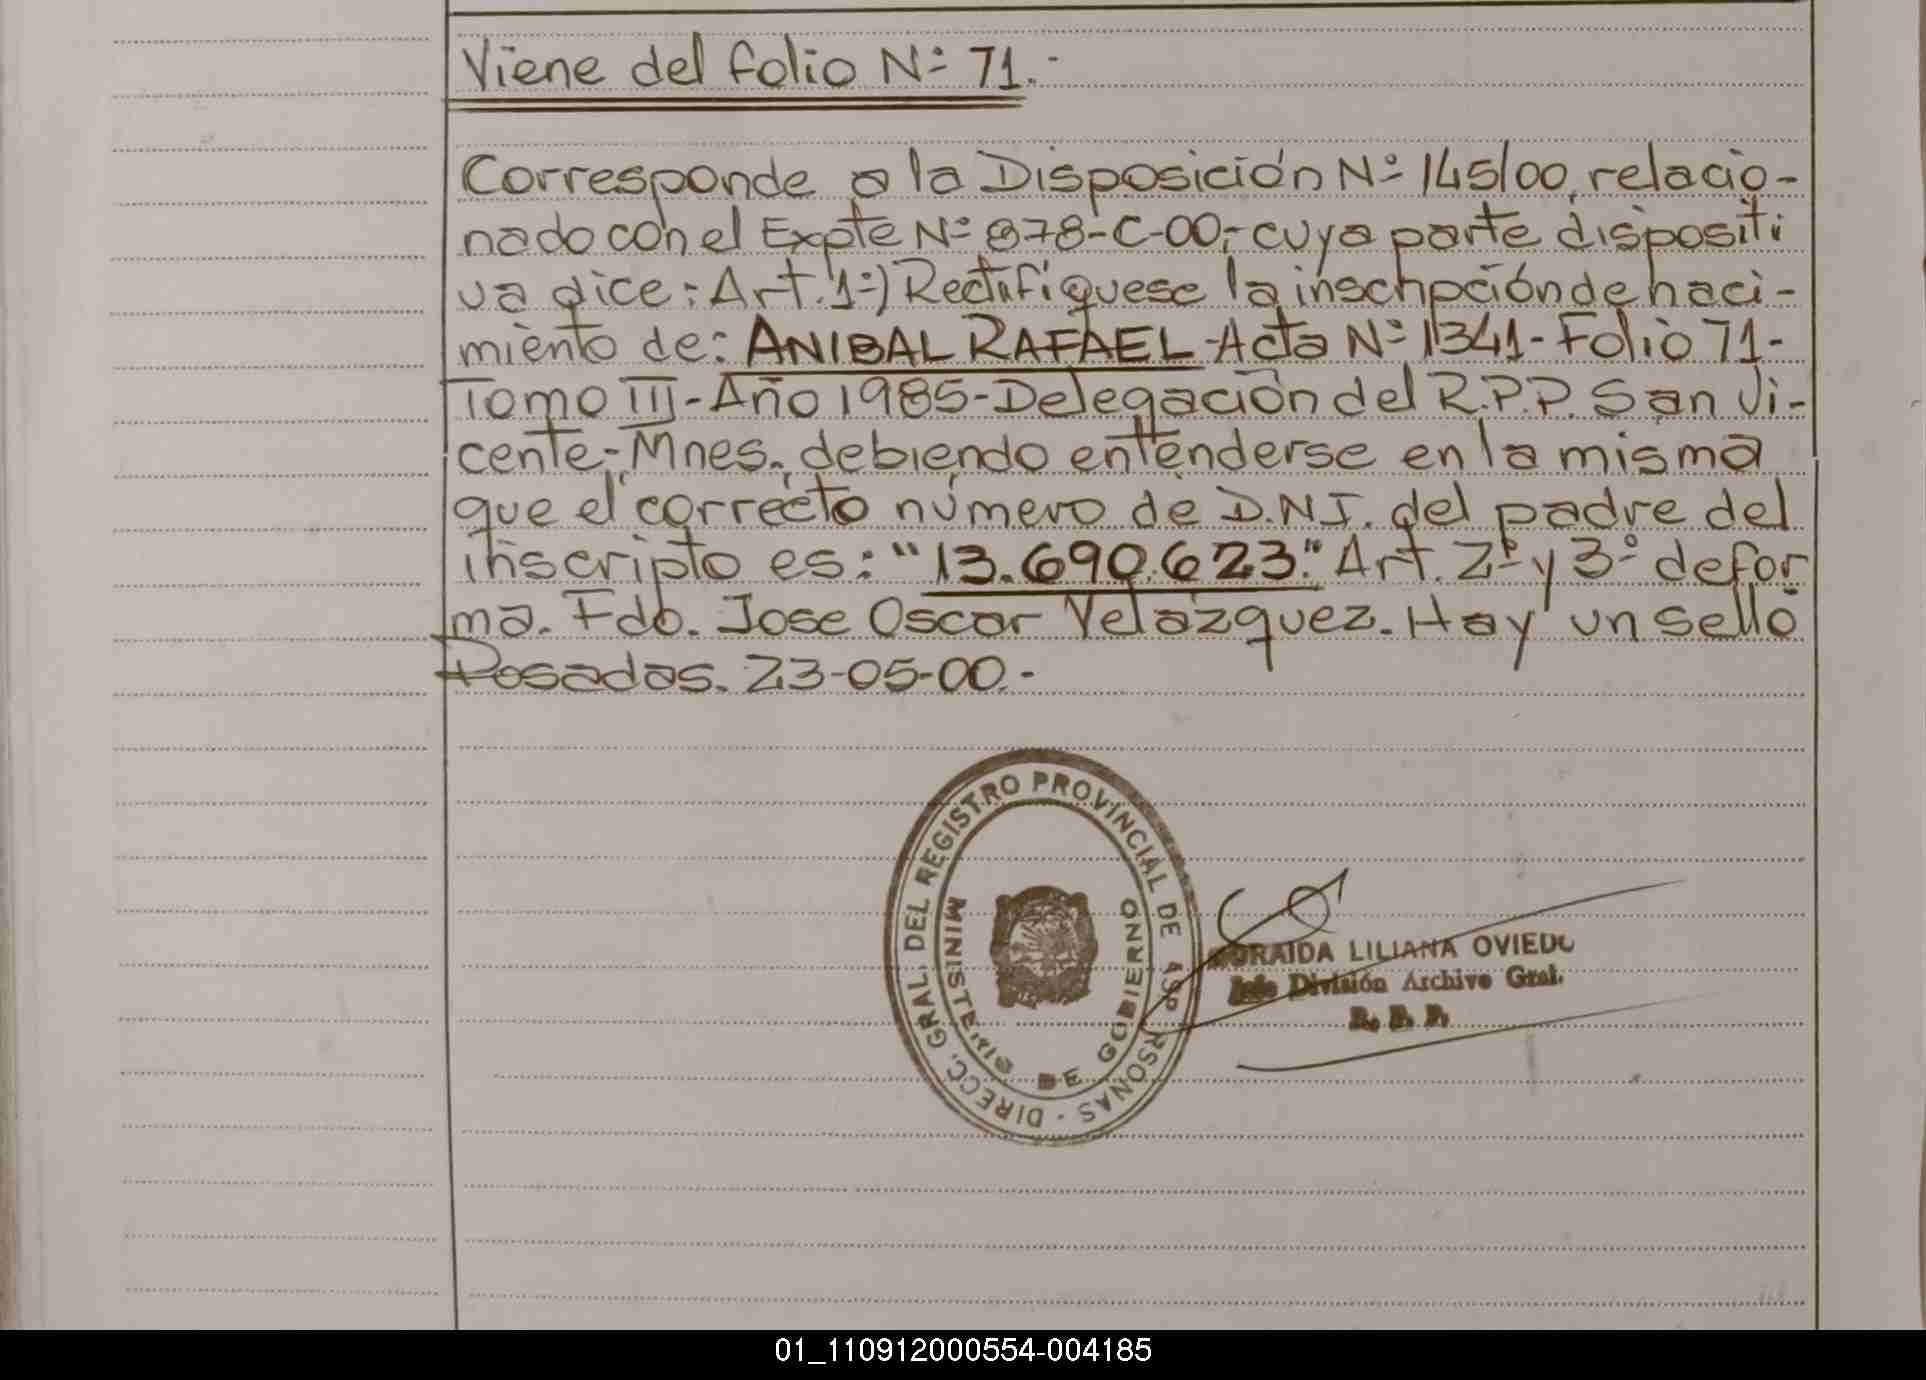 Viene del folio Nº 71.-
Corresponde a la Disposición Nº 145/00, relacio-
nado con el Expte Nº 878-C-00,- cuya parte dispositi
va dice: Art. 1º) Rectifíquese la inscripción de naci-
miento de: ANIBAL RAFAEL - Acta Nº 1341 - Folio 71 -
Tomo III - Año 1985 - Delegación del R.P.P. San Vi-
cente - Mnes., debiendo entenderse en la misma
que el correcto número de D.N.I. del padre del
inscripto es: "13.690.623". Art. 2º y 3º de for
ma. Fdo. Jose Oscar Velazquez. Hay un sello
Posadas. 23-05-00.-
DIRECC. GRAL. DEL REGISTRO PROVINCIAL DE
MINISTERIO DE GOBIERNO
LILIANA OVIEDO
Jefe División Archivo Gral.
R. P. P.
01_110912000554-004185